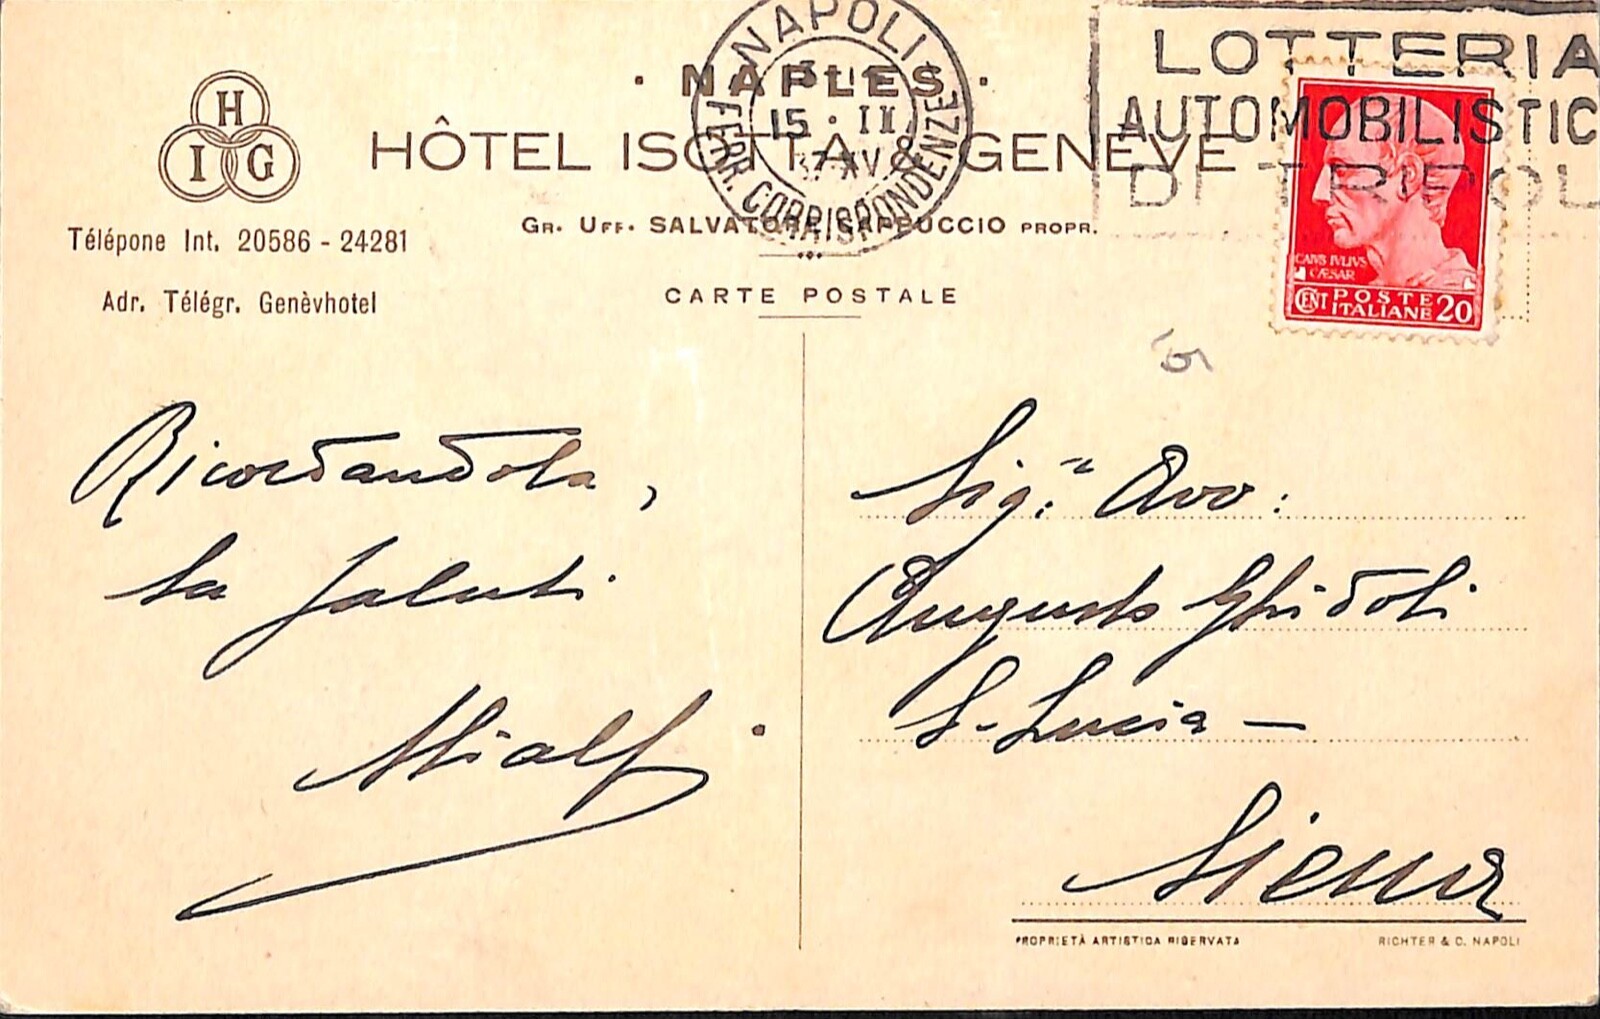 NAPOLI
FERR. CORRISPONDENZE
15 · II
37 XV
LOTTERIA
AUTOMOBILISTIC
DI TRIPOL
H
I G
Télépone Int. 20586 - 24281
Adr. Télégr. Genèvhotel
· NAPLES ·
HÔTEL ISOTTA & GENÈVE
GR. UFF. SALVATORE CAPPUCCIO PROPR.
CARTE POSTALE
CAIVS IVLIVS
CÆSAR
CENT POSTE ITALIANE 20
Ricordandola,
la saluti
Sig.r Avv:
Augusto Ghidoli
S. Lucia —
Siena
PROPRIETÀ ARTISTICA RISERVATA
RICHTER & C. NAPOLI